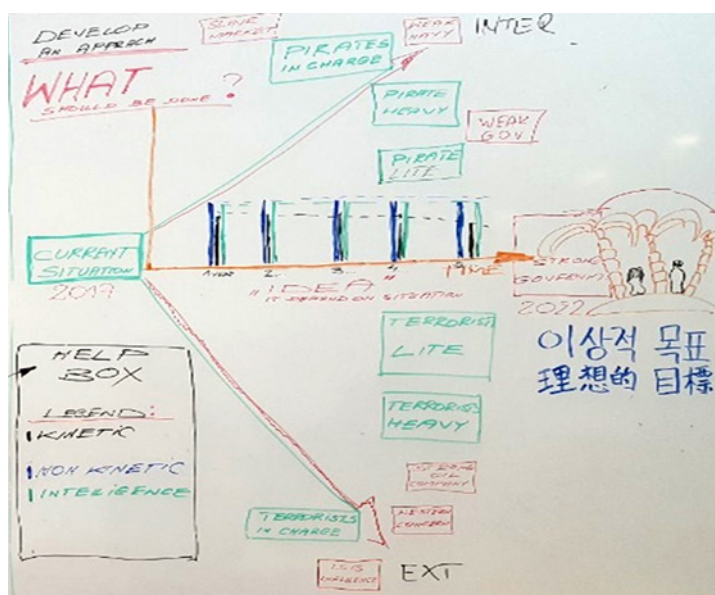 DEVELOP
AN APPROACH
WHAT
SHOULD BE DONE ?
SLAVE
MARKET
PIRATES
IN CHARGE
WEAK
NAVY
INTER
PIRATE
HEAVY
WEAK
GOV
PIRATE
LITE
CURRENT
SITUATION
2017
2...
3...
4
TIME
"IDEA"
IT DEPEND ON SITUATION
STRONG
2022
이상적 목표
理想的 目標
TERRORIST
LITE
TERRORISTS
HEAVY
STRONG
OIL
COMPANY
WESTERN
CONCERN
TERRORISTS
IN CHARGE
ISIS
INFLUENCE
EXT
HELP
BOX
LEGEND:
KINETIC
NON KINETIC
INTELIGENCE